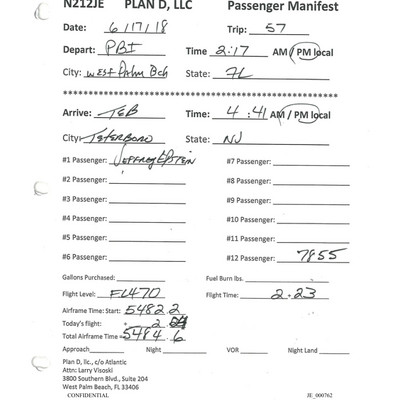 N212JE PLAN D, LLC Passenger Manifest
Date: 6/17/18 Trip: 57
Depart: PBI Time 2:17 AM / PM local
City: West Palm Bch State: FL
Arrive: TEB Time: 4:41 AM / PM local
City: Teterboro State: NJ
#1 Passenger: Jeffrey Epstein #7 Passenger:
#2 Passenger: #8 Passenger:
#3 Passenger: #9 Passenger:
#4 Passenger: #10 Passenger:
#5 Passenger: #11 Passenger:
#6 Passenger: #12 Passenger: 7855
Gallons Purchased: Fuel Burn lbs.
Flight Level: FL470 Flight Time: 2.23
Airframe Time: Start: 5482.2
Today's flight: 2.
Total Airframe Time: 5484.6
Approach Night VOR Night Land
Plan D, llc., c/o Atlantic
Attn: Larry Visoski
3800 Southern Blvd., Suite 204
West Palm Beach, FL 33406
CONFIDENTIAL JE_000762